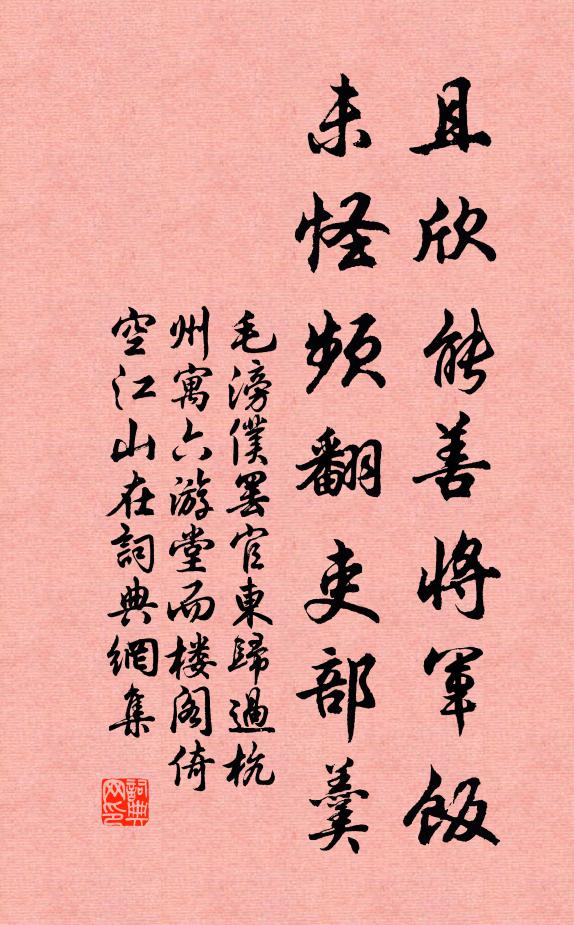 且欣能善將軍飯
未怪頻翻吏部羹
毛滂僕罷官東歸過杭
州寓六游堂而楼阁倚
空江山在詞典網集
詞典
网印